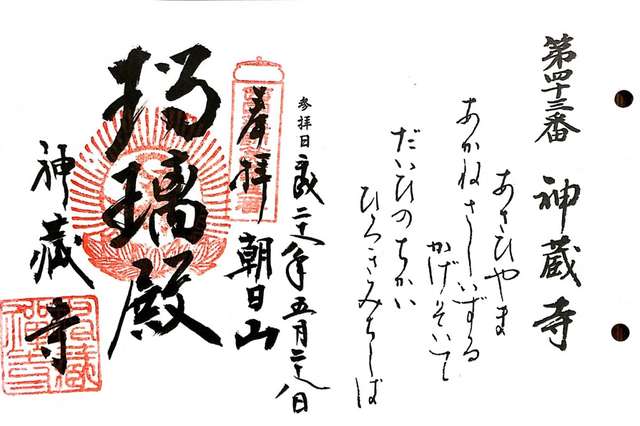 第四十三番 神蔵寺
あさひやま
あかねさしいずる
だいひのちかい
ひろきみちしば
参拝日
五月二十八日
奉拝 朝日山
瑠璃殿
神蔵寺